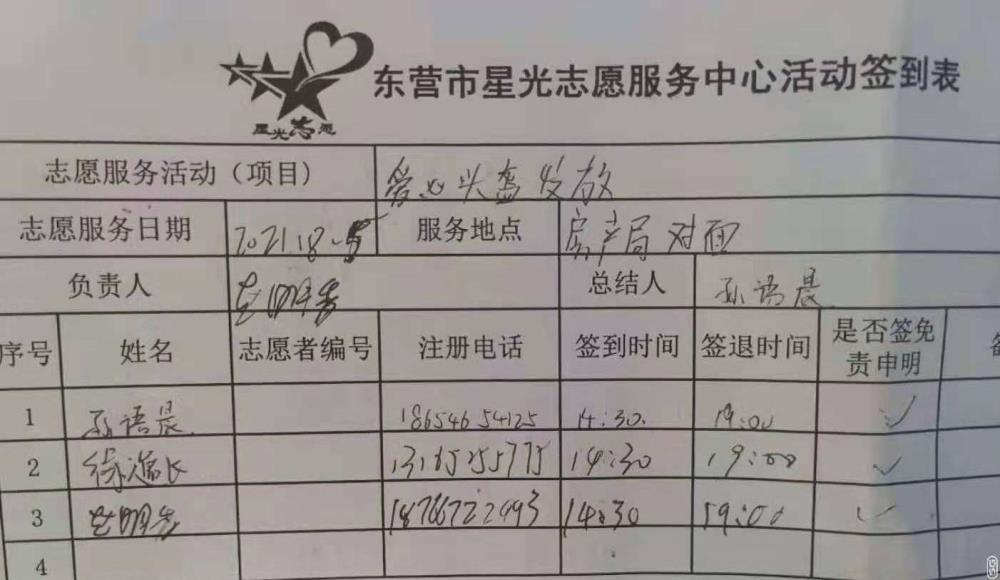 星光志愿
东营市星光志愿服务中心活动签到表
志愿服务活动（项目） 爱心头盔发放
志愿服务日期 2021.8.5 服务地点 房产局对面
负责人 总结人 孙语晨
序号 姓名 志愿者编号 注册电话 签到时间 签退时间 是否签免责申明
1 孙语晨 18654654125 14:30 19:00 ✓
2 13165255775 14:30 19:00 ✓
3 18766722993 14:30 19:00 ✓
4